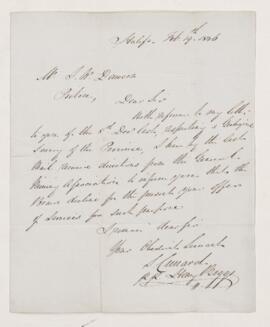 Halifax Feb. 19th 1846
Mr J. W. Dawson
Pictou,
Dear Sir
With reference to my letter
to you of the 8th Decr last, respecting a Geological
Survey of the Province, I have by the last
Mail received directions from the General
Mining Association to inform you that the
Board decline for the present your offer
of Services for such purpose
I remain dear Sir
Your Obedient Servant
S Cunard
Henry Poggs